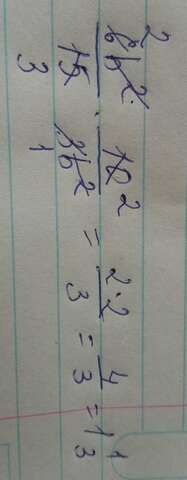 6b²/15 · 10/3b² = 2·2/3 = 4/3 = 1 1/3